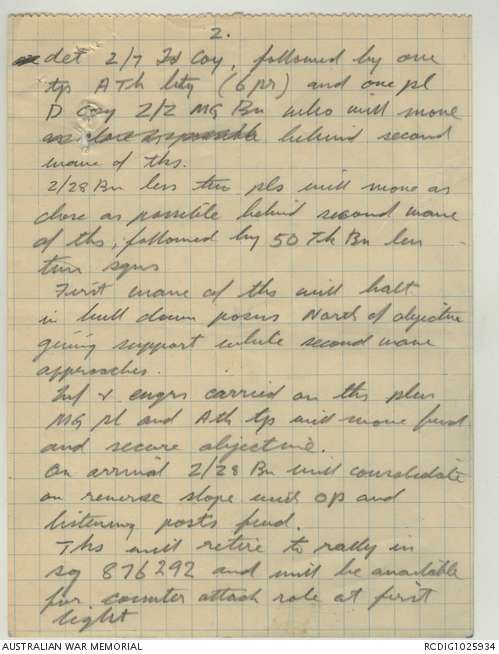 2.
det 2/7 Fd Coy, followed by one
tp A Tk bty (6 pr) and one pl
D Coy 2/2 MG Bn who will move
as close as possible behind second
wave of tks.
2/28 Bn less two pls will move as
close as possible behind second wave
of tks, followed by 50 Tk Bn less
two sqns
First wave of tks will halt
in hull down posns North of objective
giving support while second wave
approaches.
Inf & engrs carried on tks plus
MG pl and A tk tp will move fwd
and secure objective.
On arrival 2/28 Bn will consolidate
on reverse slope with OP and
listening posts fwd.
Tks will retire to rally in
sq 876292 and will be available
for counter attack role at first
light
AUSTRALIAN WAR MEMORIAL
RCDIG1025934